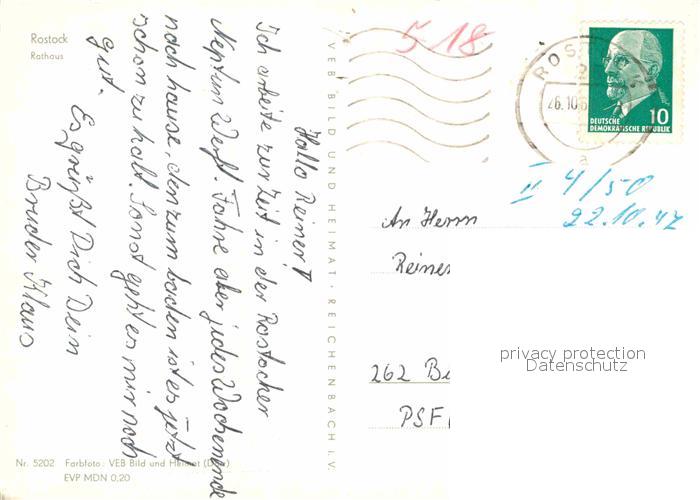 Rostock
Rathaus
Hallo Reiner!
Ich arbeite zur Zeit in der Rostocher
Neptun Werft. Fahre aber jedes Wochenende
nach hause, den zum baden ist es jetzt
schon zu kalt. Sonst geht es mir noch
gut.
Es grüßt Dich Dein
Bruder Klaus
Nr. 5202 Farbfoto: VEB Bild und Heimat
EVP MDN 0,20
VEB BILD UND HEIMAT · REICHENBACH i. V.
5 18
ROST
26.10.6
a
10
DEUTSCHE
DEMOKRATISCHE REPUBLIK
II 4/50
22.10.47
An Herrn
Reiner
262 Be
PSF
privacy protection
Datenschutz